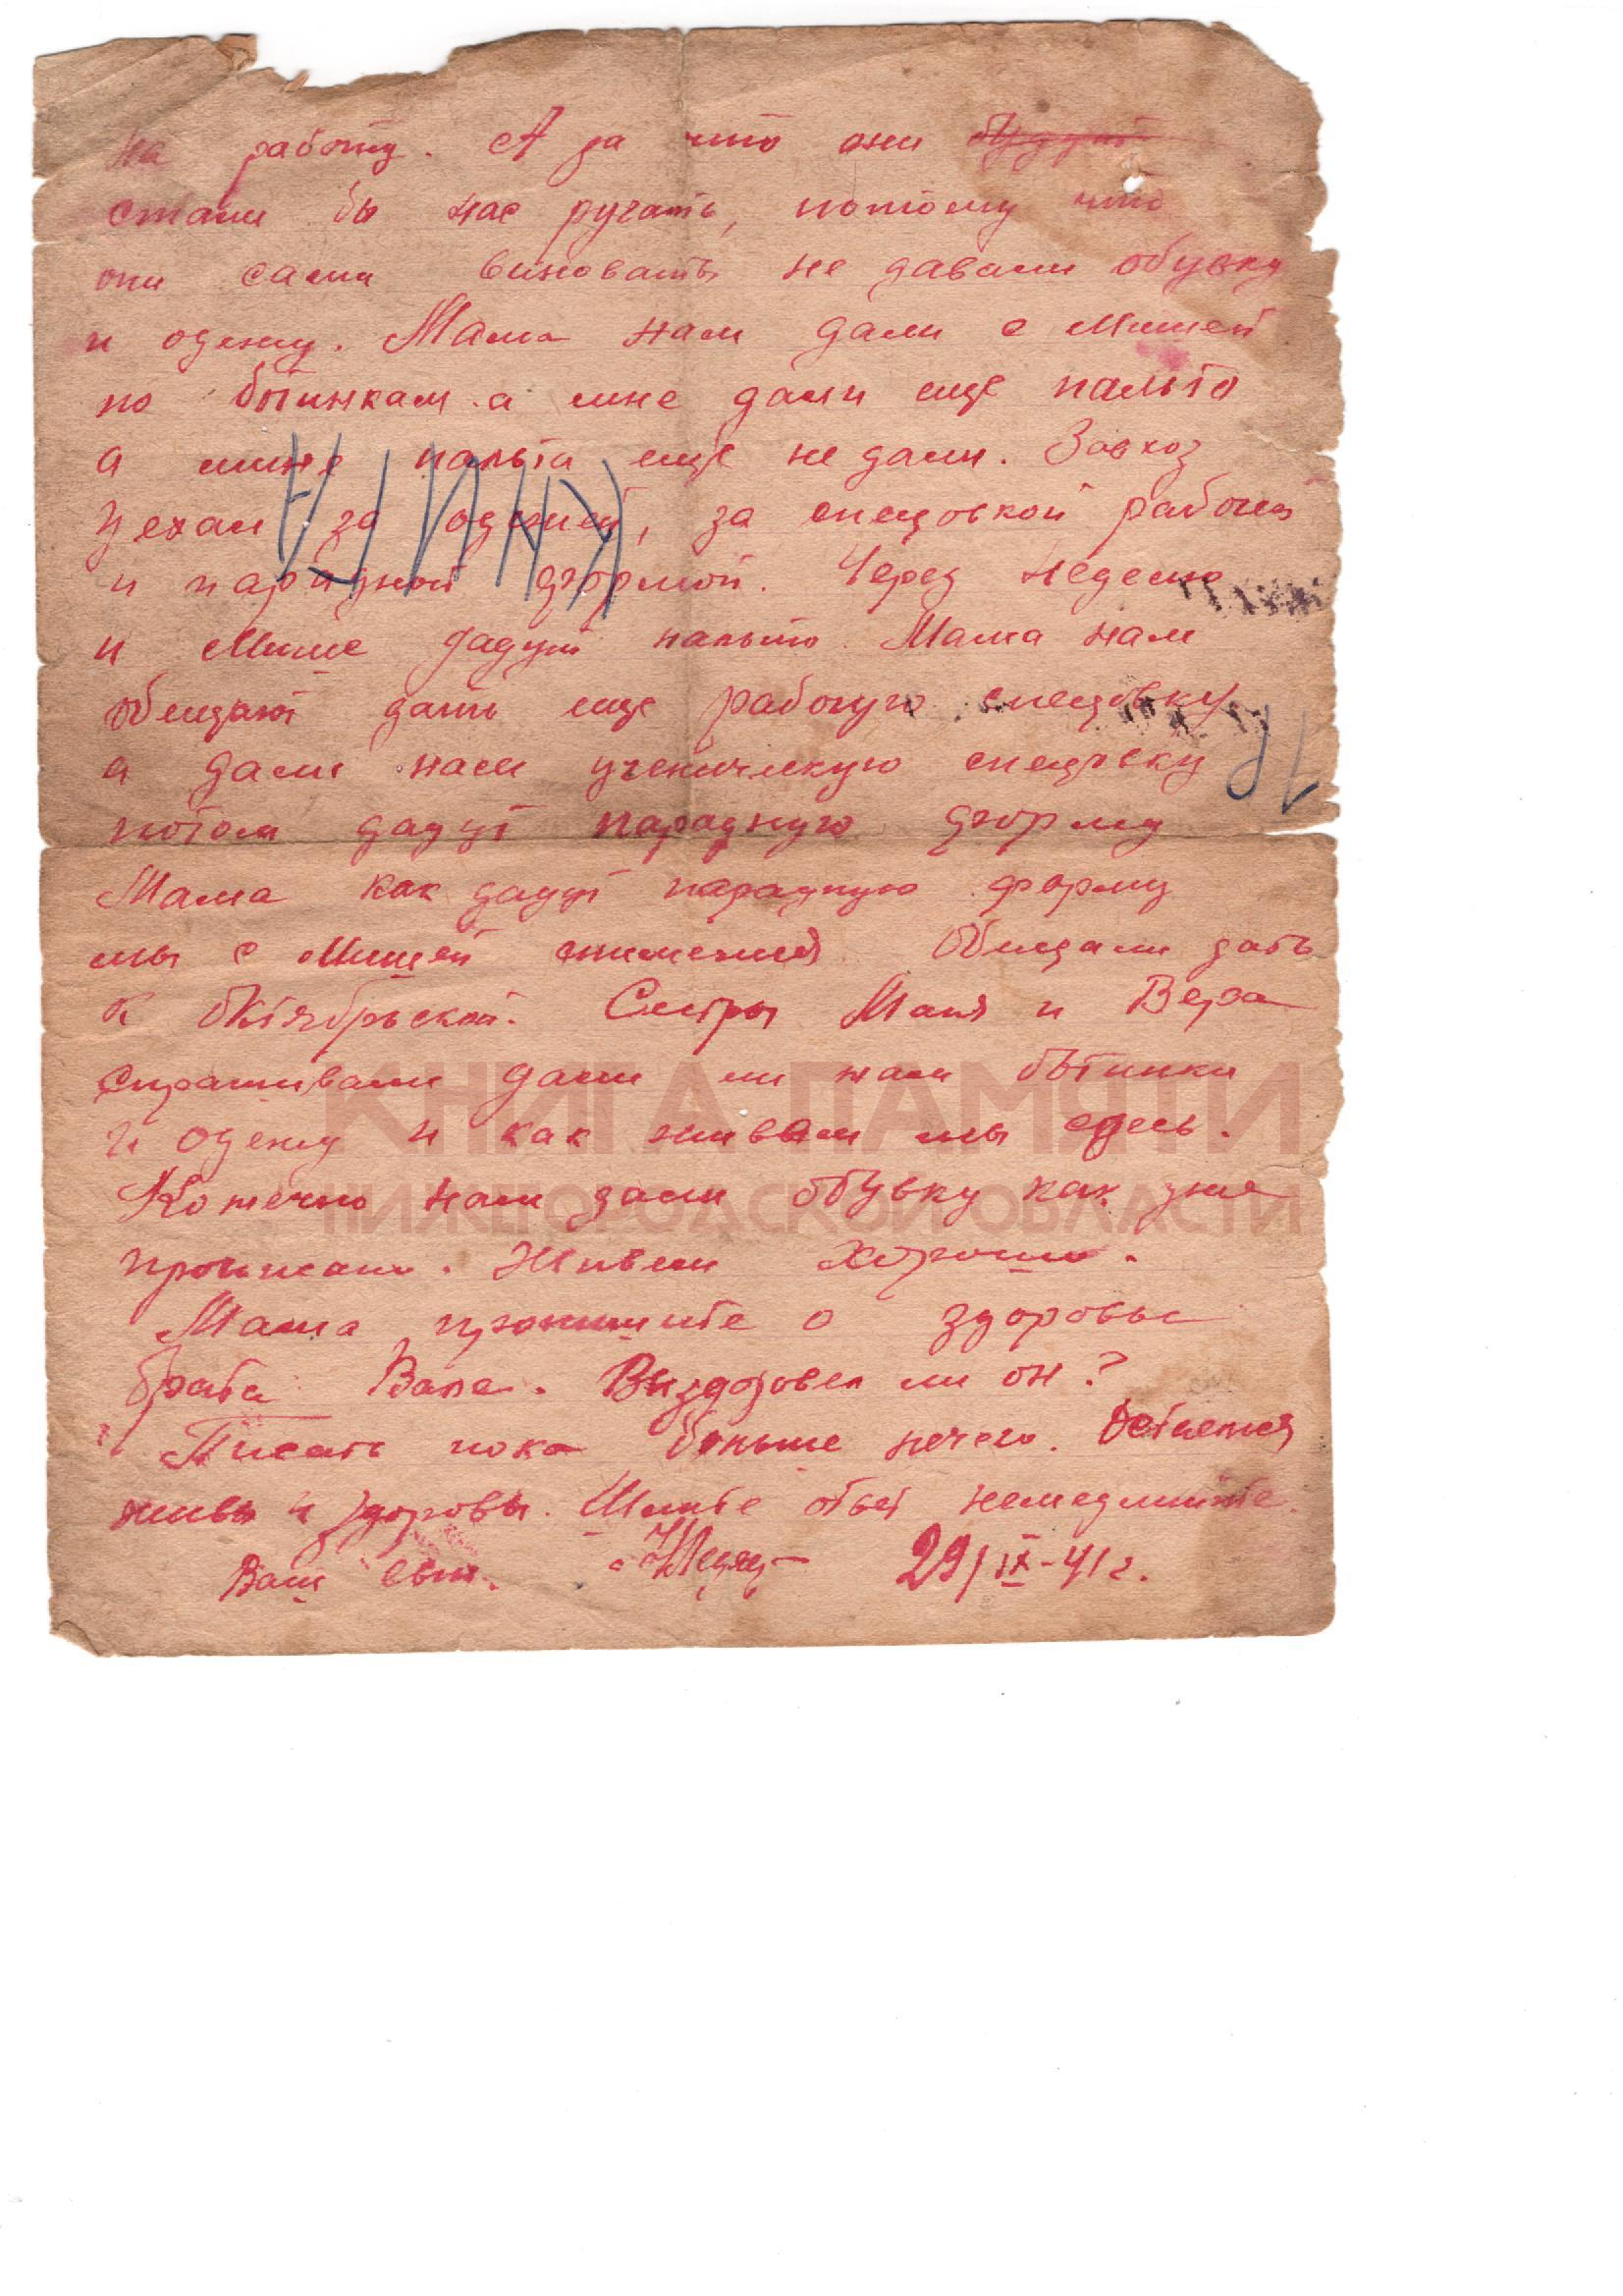 на работу. А за что они будут
стали бы нас ругать, потому что
они сами виноваты не давали обувку
и одежу. Мама нам дали с Мишей
по ботинкам а мне дали еще пальто
а мише пальта еще не дали. Завхоз
уехал за одежей, за спецовкой рабочей
и парадной формой. Через неделю
и Мише дадут пальто. Мама нам
обещают дать еще рабочую спецовку
а дали нам ученическую спецовку
потом дадут парадную форму
Мама как дадут парадную форму
мы с Мишей снимемся Обещали дать
к Октябрьской. Сестры Маня и Вера
спрашивали дали ли нам ботинки
и одежу и как живем мы здесь.
Конечно нам дали обувку как уже
прописано. Живем хорошо.
КНИГА ПАМЯТИ
НИЖЕГОРОДСКОЙ ОБЛАСТИ
Мама пропишите о здоровье
брата Вани. Выздоровел ли он?
Писать пока больше нечего. Остаемся
живы и здоровы. Шлите ответ немедлийте.
Ваш сын. 29/IX-41г.